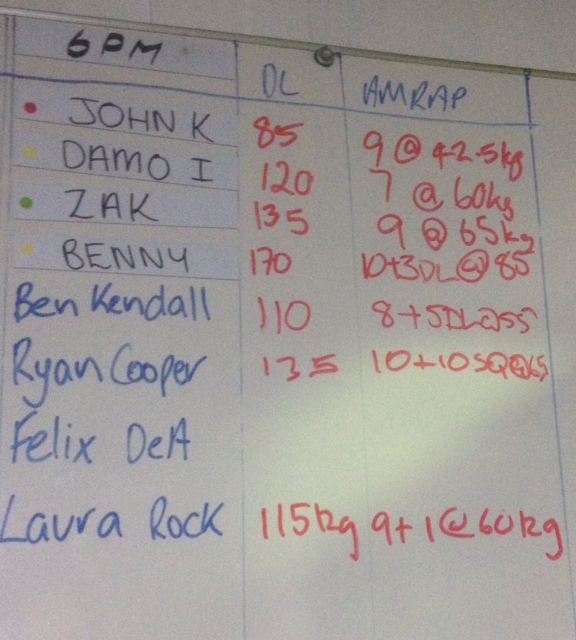 6PM DL AMRAP
JOHN K 85 9 @ 42.5kg
DAMO I 120 7 @ 60kg
ZAK 135 9 @ 65kg
BENNY 170 10+3DL@85
Ben Kendall 110 8+5DL@55
Ryan Cooper 135 10+10SQ@65
Felix DeA
Laura Rock 115kg 9+1@60kg